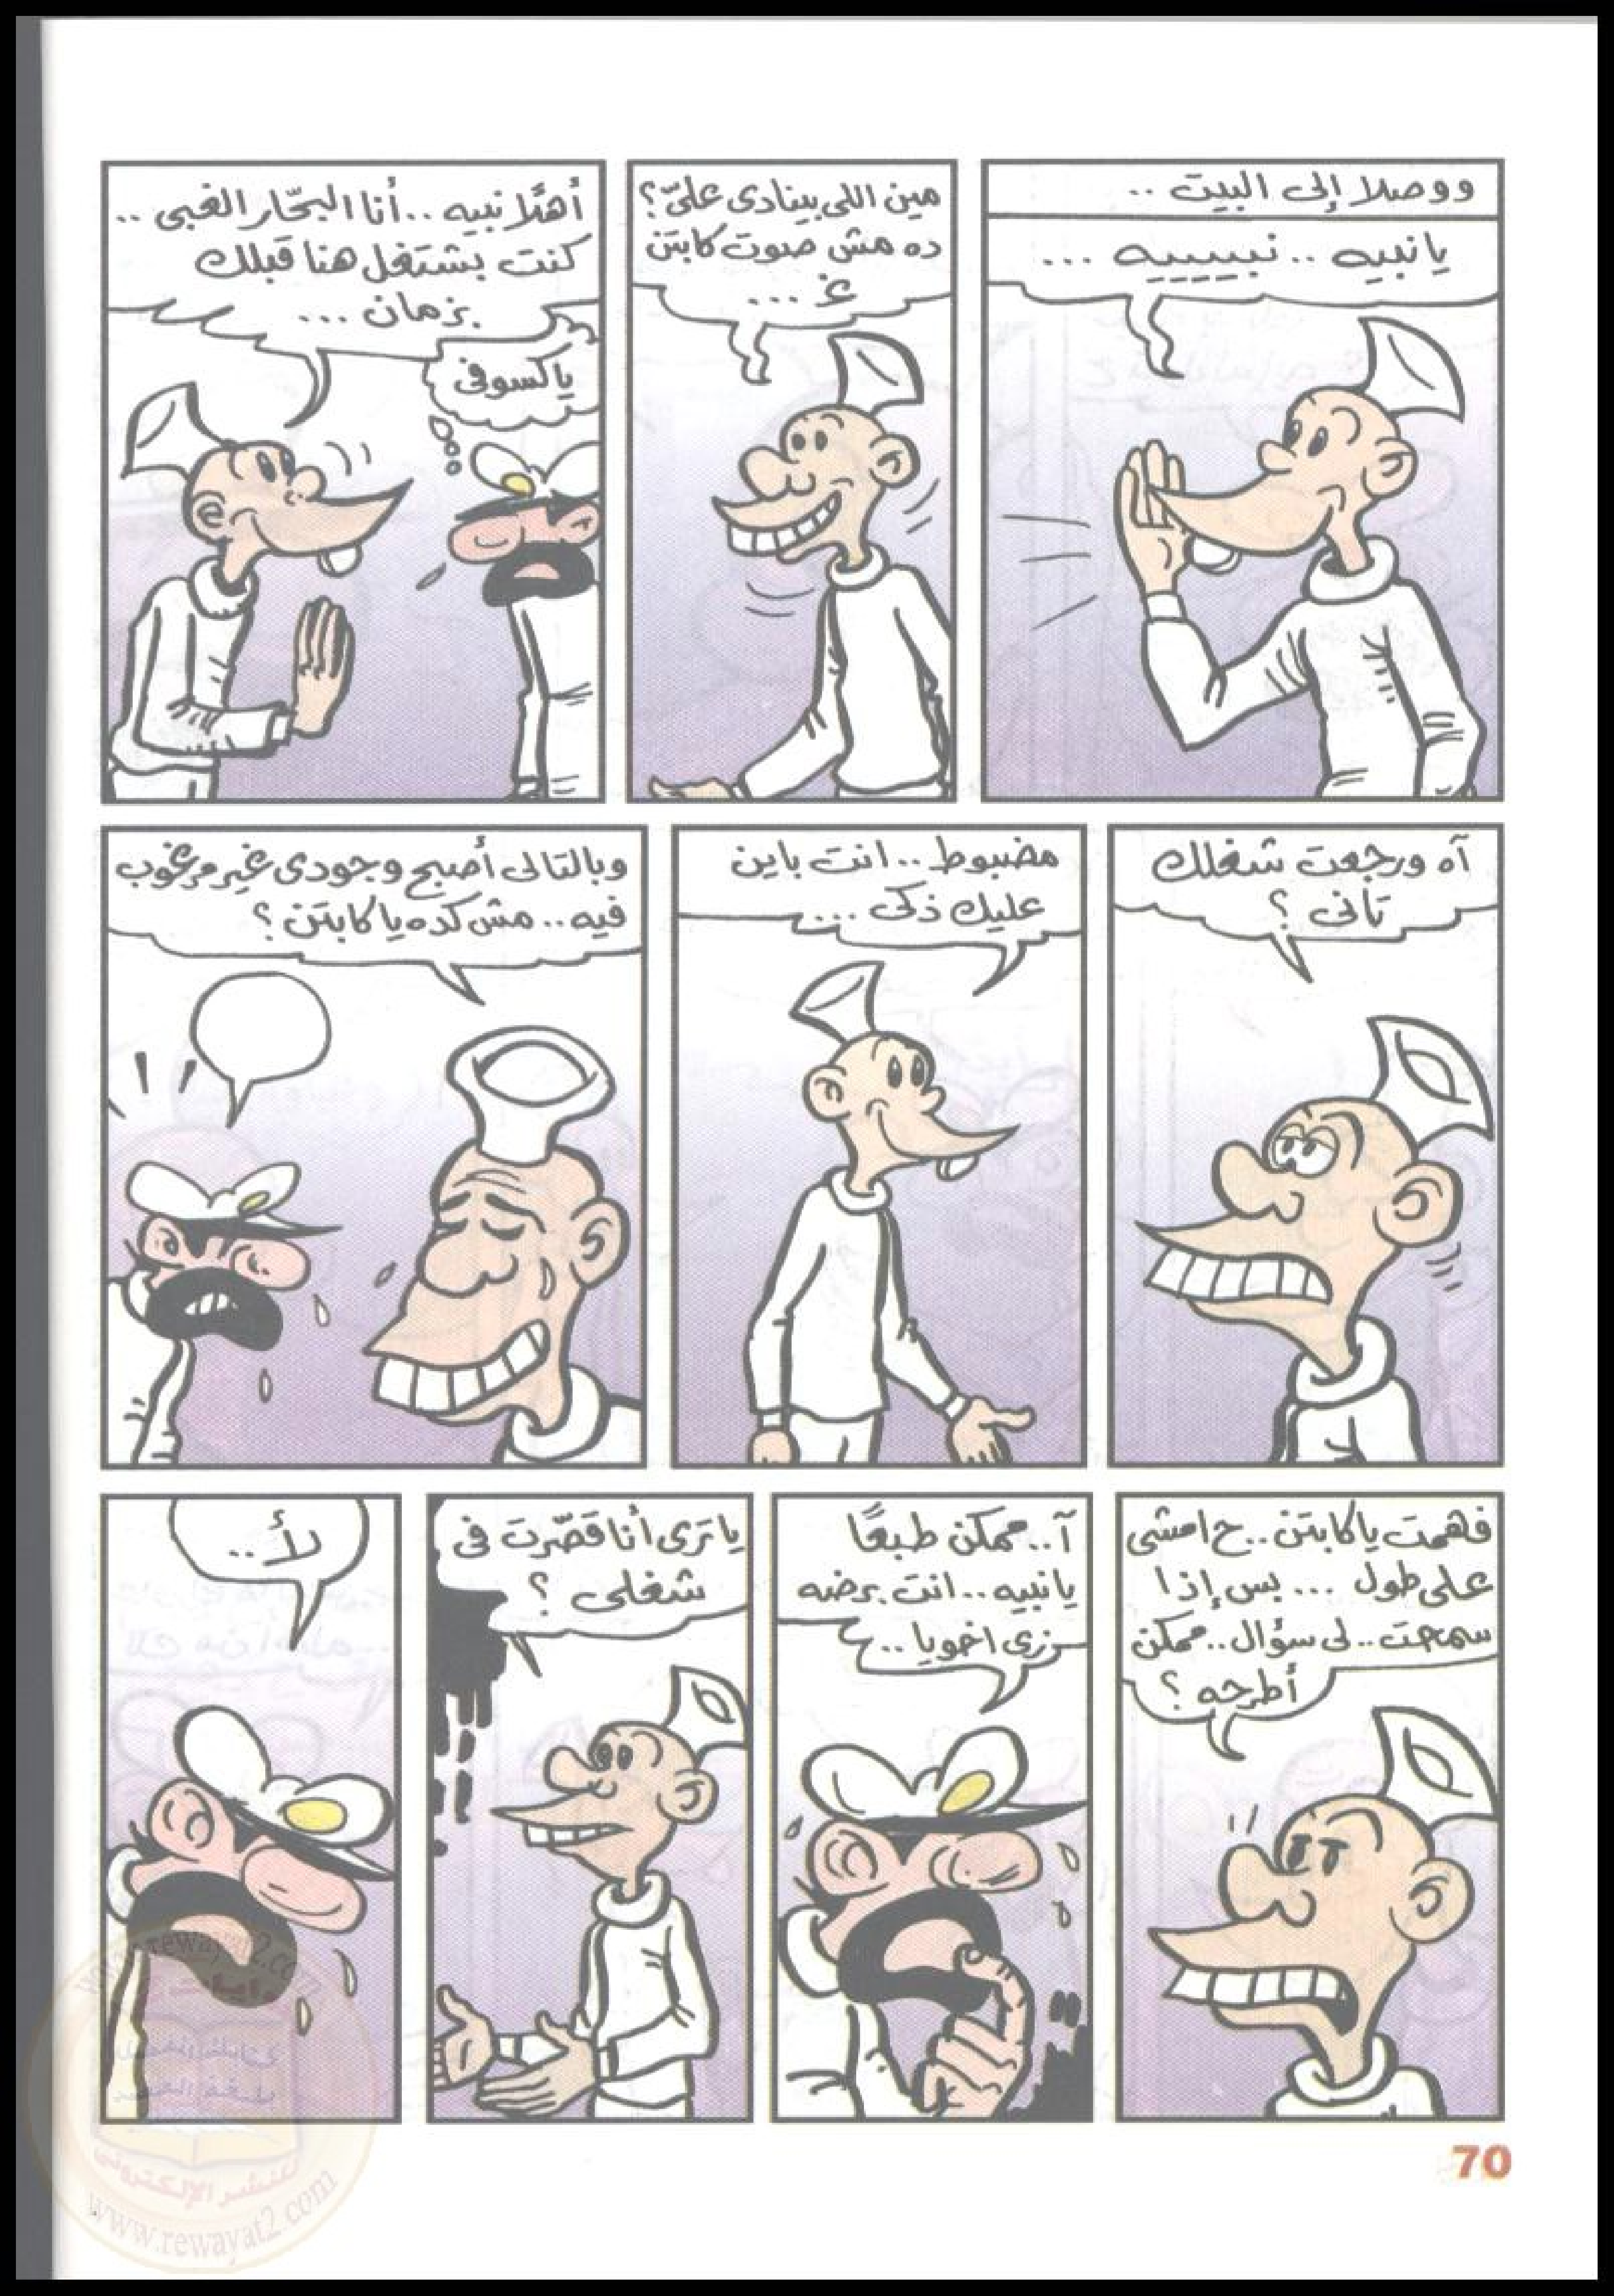 ووصلا إلى البيت ..
يا نبيه .. نبييييه ...
مين اللى بينادى علىّ ؟
ده مش صوت كابتن
غ ...
أهلًا نبيه .. أنا البحّار الغبى ..
كنت بشتغل هنا قبلك
بزمان ...
يا كسوفى
آه ورجعت شغلك
تانى ؟
مضبوط .. انت باين
عليك ذكى ...
وبالتالى أصبح وجودى غير مرغوب
فيه .. مش كده يا كابتن ؟
فهمت يا كابتن .. ح امشى
على طول ... بس إذا
سمحت .. لى سؤال .. ممكن
أطرحه ؟
آ .. ممكن طبعًا
يا نبيه .. انت برضه
زى اخويا ..
يا ترى أنا قصّرت فى
شغلى ؟
لأ ..
70
www.rewayat2.com
للنشر الإلكترونى
www.rewayat2.com